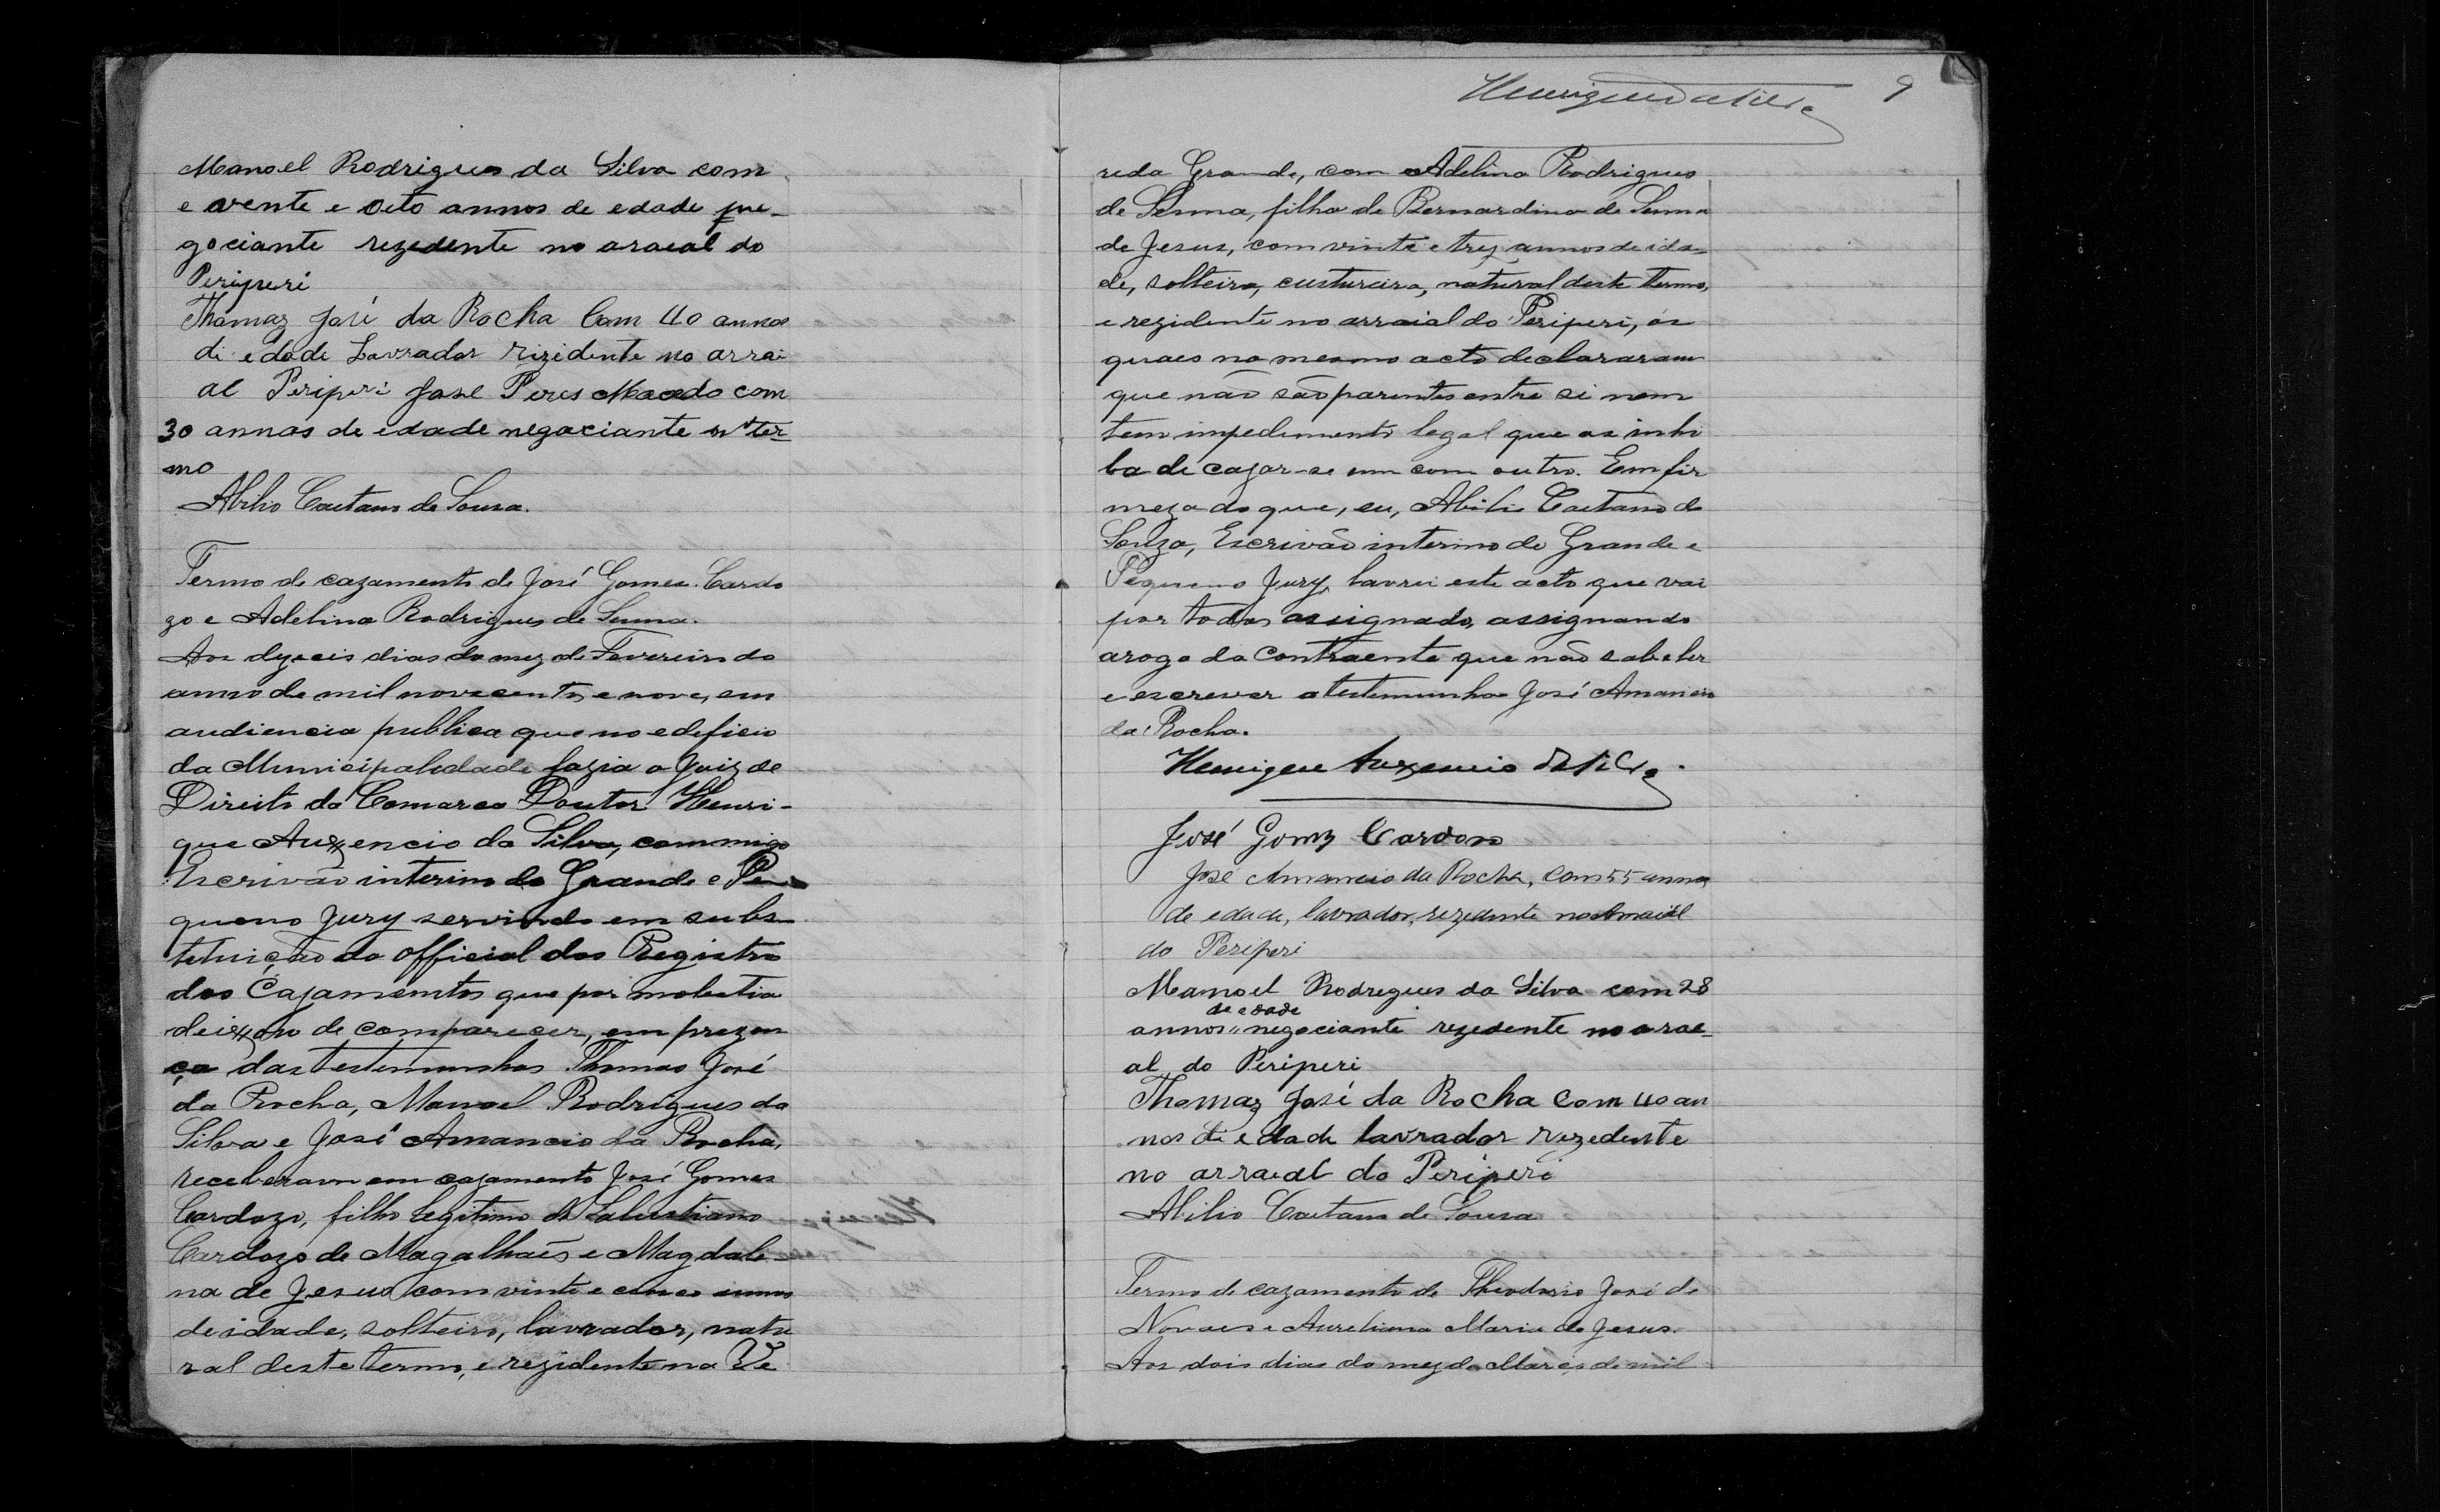 Manoel Rodrigues da Silva com
e vente e oeto annos de edade ne-
gociante rezedente no araeal do
Periperi
Thomaz José da Rocha Com 40 annos
di edade Lavrador rizidente no arrai
al Periperi José Peres Macedo com
30 annos de edade negociante n'ter
mo
Abilio Caetano de Souza.
Termo de cazamento de José Gomes Cardo
zo e Adelina Rodrigues de Senna.
Aos dezeseis dias do mez de Fevereiro do
anno de mil novecentos e nove, em
audiencia publica que no edeficio
da Municipalidade fazia o Juiz de
Direito da Comarca Doutor Henri-
que Auxencio da Silva, commigo
Escrivão interino do Grande e Pe
queno Jury servindo em subs-
tetuição do official dos Registro
dos Cazamentos que por molestia
deixou de comparecer, em prezen
ça das testemunhas Thomas José
da Rocha, Manoel Rodrigues da
Silva e José Amancio da Rocha,
receberam em cazamento José Gomes
Cardozo, filho legitimo de Salustiano
Cardozo de Magalhaes e Magdale-
na de Jesus com vinte e cinco annos
de idade, solteiro, lavrador, natu
ral deste termo, e rezidente na Ve
Henrique da Silva
9
reda Grande, com Adelina Rodrigues
de Senna, filha de Bernardina de Senna
de Jesus, com vinte e trez annos de ida-
de, solteira, custureira, natural deste termo,
e rezidente no arraial do Periperi, os
quaes no mesmo acto declararam
que não são parentes entre si nem
tem impedimento legal que os inhi
ba de cazar-se um com outro. Em fir
meza do que, eu, Abilio Caetano de
Souza, Escrivão interino do Grande e
Pequeno Jury, lavrei este acto que vai
por todos assignado, assignando
arogo da Contraente que não sabe ler
e escrever a testemunha José Amancio
da Rocha.
Henrique Auxencio da Silva.
José Gomz Cardoso
José Amancio da Rocha, com 55 annos
de edade, lavrador, rezedente no Arraial
do Periperi
Manoel Rodregues da Silva com 28
de edade
annos " negociante rezedente no arae-
al do Periperi
Thomaz José da Rocha Com 40 an
nos di edade lavrador rezedente
no arraeal do Periperi
Abilio Caetano de Souza
Termo de cazamento de Theodorio José de
Novaes e Aureliana Maria de Jesus.
Aos dois dias do mez de Março de mil